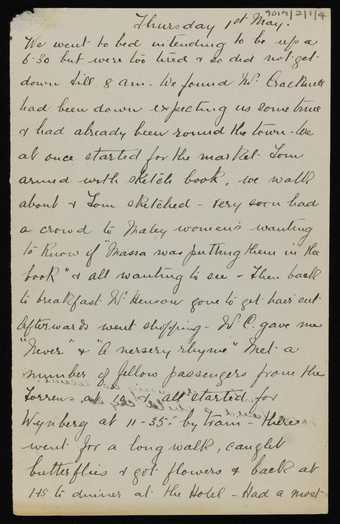 9019/2/1/4
Thursday 1st May.
We went to bed intending to be up a
6-30 but were too tired & so did not get
down till 8 am. We found Mr. Cracknell
had been down expecting us some time
& had already been round the town. We
at once started for the market. Tom
armed with sketch book, we walk
about & Tom sketched - very soon had
a crowd to Malay women's wanting
to know if "Massa was putting them in the
book" & all wanting to see - Then back
to breakfast. Mr Henson gone to get hair cut
Afterwards went shopping - Mr C. gave me
"Never" & "A nersery rhyme" Met a
number of fellow passengers from the
Torrens, & all started for
Wynberg at 11-35 - by tram - there
went for a long walk, caught
butterflies & got flowers & back at
to dinner at the Hotel - Had a most